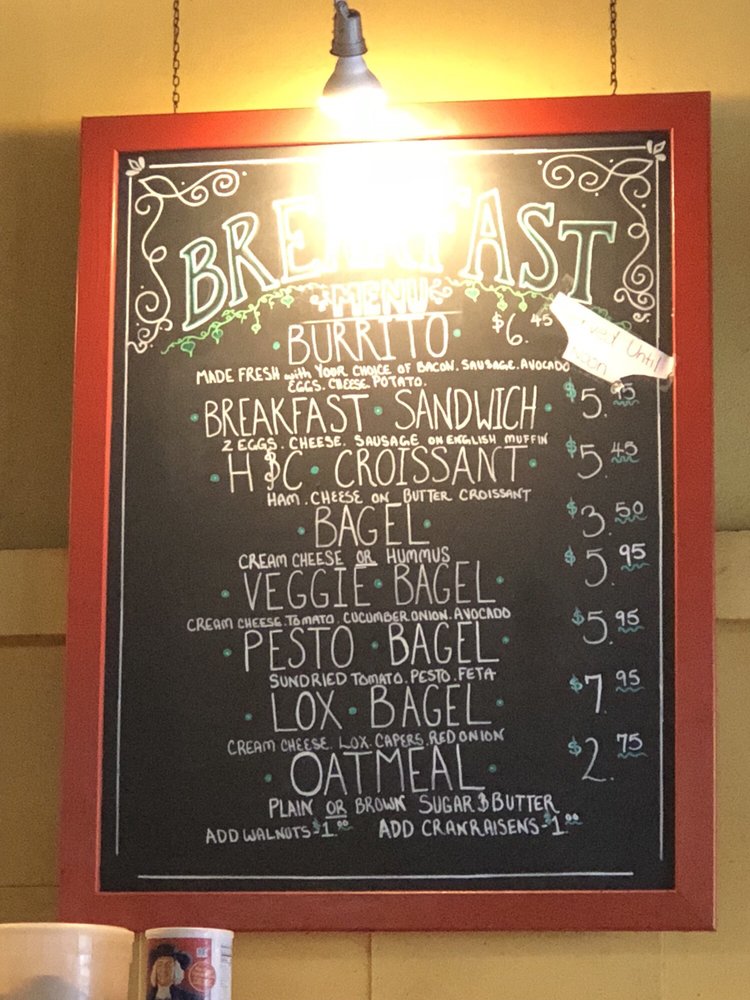 BREAKFAST
MENU
BURRITO $6.45
Until
Noon
MADE FRESH with YOUR CHOICE OF BACON. SAUSAGE. AVOCADO
EGGS. CHEESE. POTATO.
BREAKFAST • SANDWICH $5.95
2 EGGS. CHEESE. SAUSAGE ON ENGLISH MUFFIN
H&C • CROISSANT $5.45
HAM. CHEESE ON BUTTER CROISSANT
BAGEL $3.50
CREAM CHEESE OR HUMMUS
VEGGIE • BAGEL $5.95
CREAM CHEESE. TOMATO. CUCUMBER ONION. AVOCADO
PESTO • BAGEL $5.95
SUNDRIED TOMATO. PESTO. FETA
LOX • BAGEL $7.95
CREAM CHEESE. LOX. CAPERS. RED ONION
OATMEAL $2.75
PLAIN OR BROWN SUGAR & BUTTER
ADD WALNUTS-$1.00 ADD CRANRAISENS-$1.00